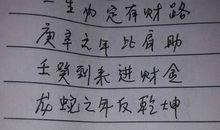 生仍定有财路
庚辛之年比肩助
壬癸到来进财金
龙蛇之年反乾坤